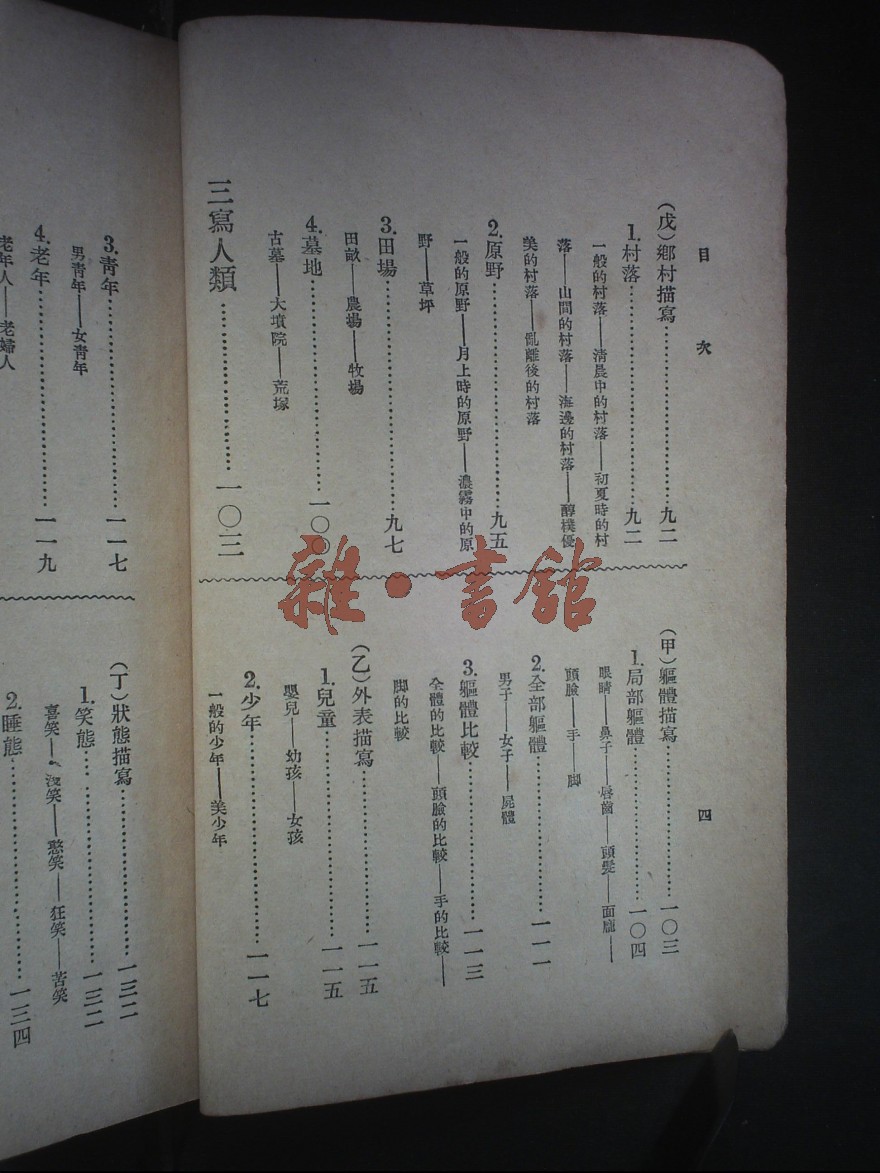 目次
四
(戊)鄉村描寫……………………九二
1.村落……………………九二
一般的村落——清晨中的村落——初夏時的村
落——山間的村落——海邊的村落——醇樸優
美的村落——亂離後的村落
2.原野……………………九五
一般的原野——月上時的原野——濃霧中的原
野——草坪
3.田場……………………九七
田畝——農場——牧場
4.墓地……………………一〇〇
古墓——大墳院——荒塚
三寫人類……………………一〇三
(甲)軀體描寫……………………一〇三
1.局部軀體……………………一〇四
眼睛——鼻子——唇齒——頭髮——面龐——
頭臉——手——脚
2.全部軀體……………………一一一
男子——女子——屍體
3.軀體比較……………………一一三
全體的比較——頭臉的比較——手的比較——
脚的比較
(乙)外表描寫……………………一一五
1.兒童……………………一一五
嬰兒——幼孩——女孩
2.少年……………………一一七
一般的少年——美少年
3.靑年……………………一一七
男靑年——女靑年
4.老年……………………一一九
老年人——老婦人
(丁)狀態描寫……………………一三二
1.笑態……………………一三二
喜笑——笑——憨笑——狂笑——苦笑
2.睡態……………………一三四
雜·書館